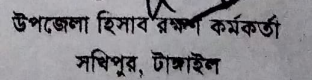 উপজেলা হিসাব রক্ষণ কর্মকর্তা
সখিপুর, টাঙ্গাইল